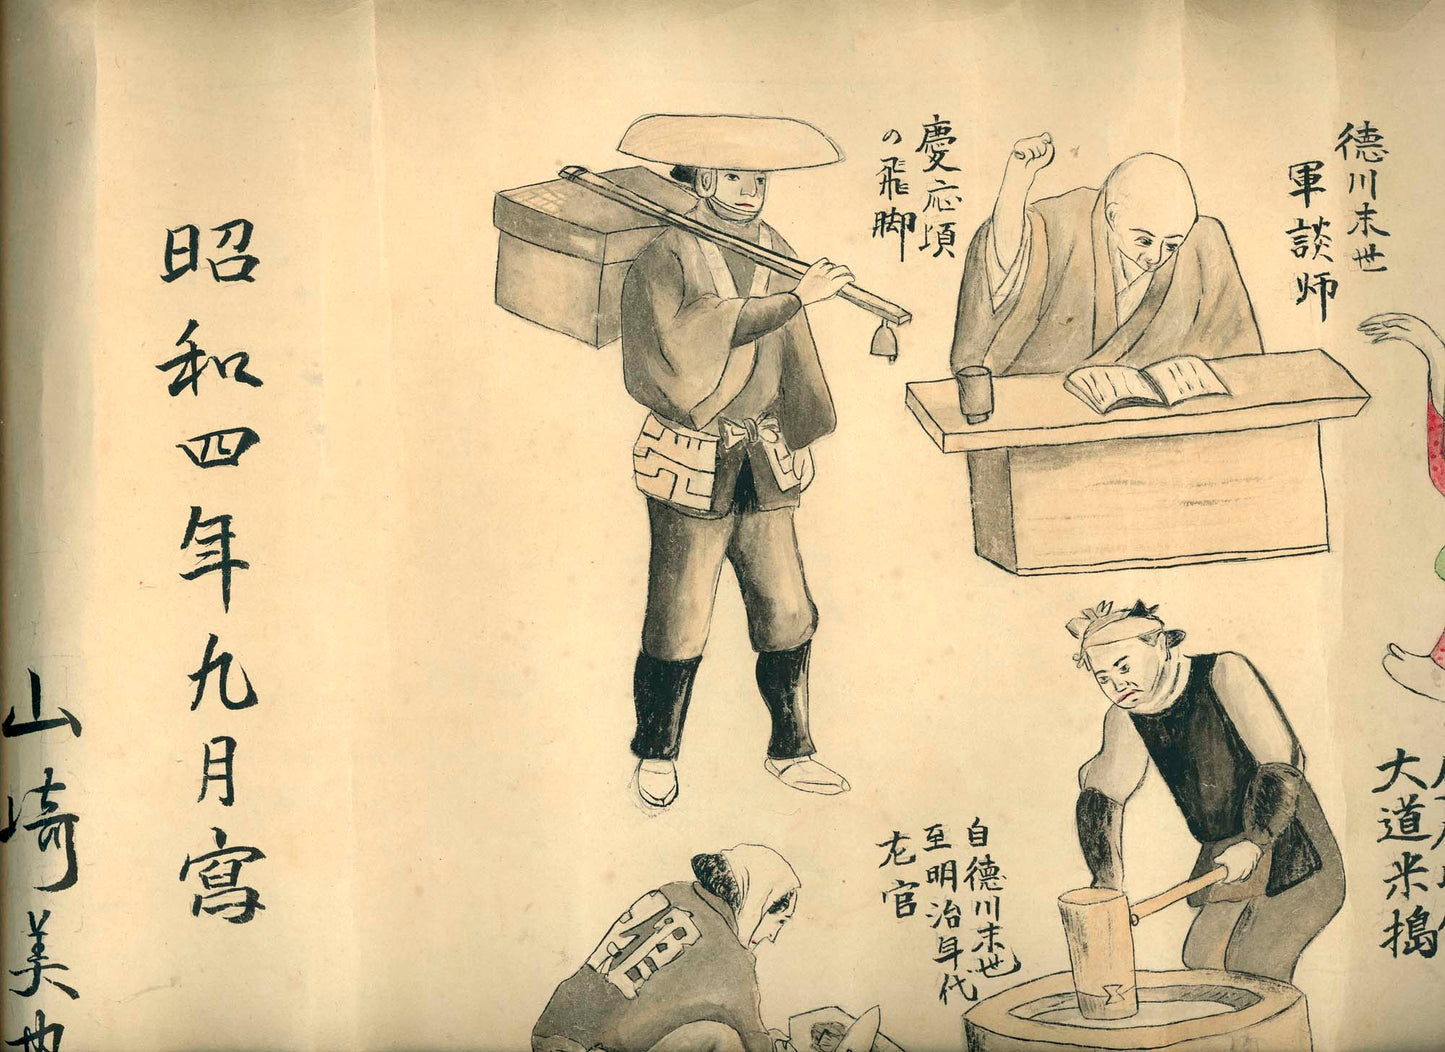 徳川末世
軍談師
慶応頃
の飛脚
大道米搗
自徳川末世
至明治年代
昭和四年九月寫
山崎美